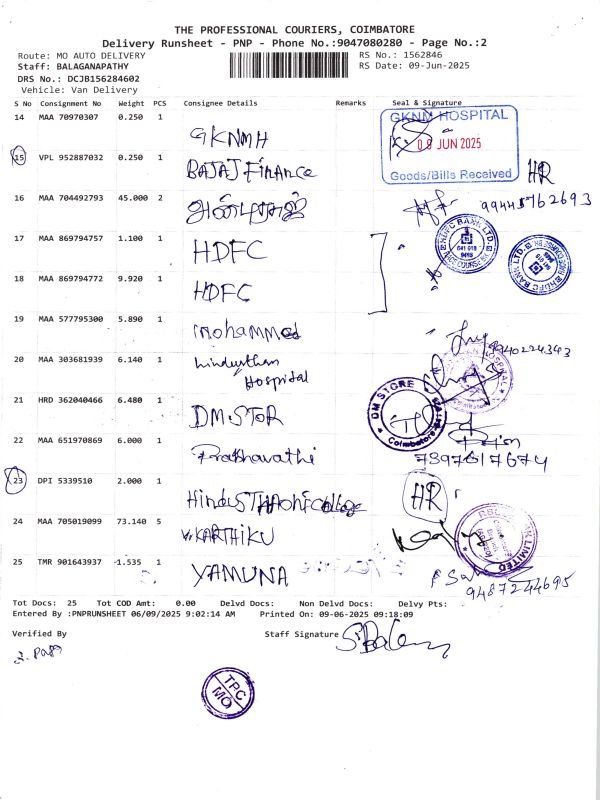 THE PROFESSIONAL COURIERS, COIMBATORE
Delivery Runsheet - PNP - Phone No.:9047080280 - Page No.:2
Route: MO AUTO DELIVERY RS No.: 1562846
Staff: BALAGANAPATHY RS Date: 09-Jun-2025
DRS No.: DCJB156284602
Vehicle: Van Delivery
S No Consignment No Weight PCS Consignee Details Remarks Seal & Signature
14 MAA 70970307 0.250 1 GKNMH
GKNM HOSPITAL
09 JUN 2025
Goods/Bills Received
15 VPL 952887032 0.250 1 BAJAJ Finance HR
16 MAA 704492793 45.000 2 9944
17 MAA 869794757 1.100 1 HDFC
HDFC BANK LTD.
18 MAA 869794772 9.920 1 HDFC
HDFC BANK LTD.
19 MAA 577795300 5.890 1 mohammed
20 MAA 303681939 6.140 1 hindusthan Hospital 9940224343
21 HRD 362040466 6.480 1 DM.STOR
DM STORE
Coimbatore
22 MAA 651970869 6.000 1 Prabhavathi 7397617674
23 DPI 5339510 2.000 1 HR
24 MAA 705019099 73.140 5 V.KARTHIKU
LIMITED
25 TMR 901643937 -1.535 1 YAMUNA 9487244695
Tot Docs: 25 Tot COD Amt: 0.00 Delvd Docs: Non Delvd Docs: Delvy Pts:
Entered By :PNPRUNSHEET 06/09/2025 9:02:14 AM Printed On: 09-06-2025 09:18:09
Verified By Staff Signature
TPC
MO